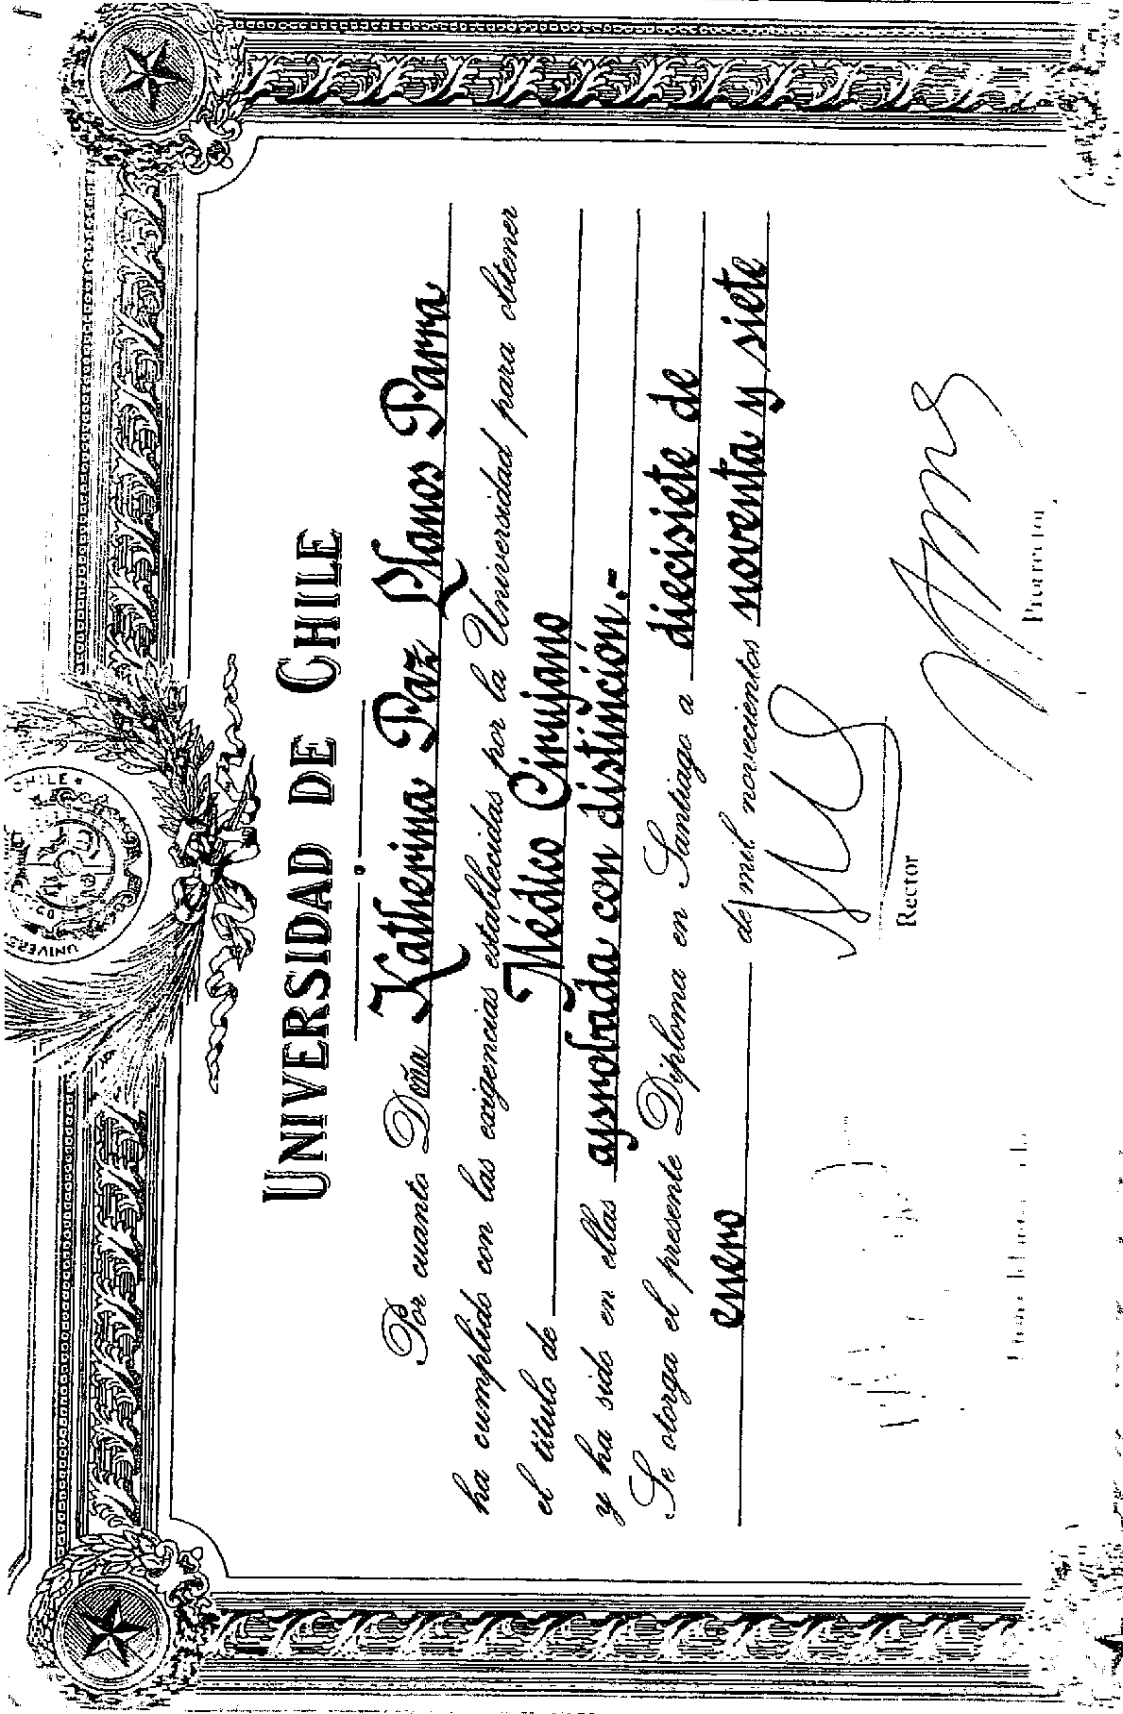 CHILE
UNIVERS
UNIVERSIDAD DE CHILE
Por cuanto Doña Katherina Paz Llanos Parra
ha cumplido con las exigencias establecidas por la Universidad para obtener
el título de Médico Cirujano
y ha sido en ellas aprobada con distinción.-
Se otorga el presente Diploma en Santiago a diecisiete de
enero de mil novecientos noventa y siete
Rector
Prorrector